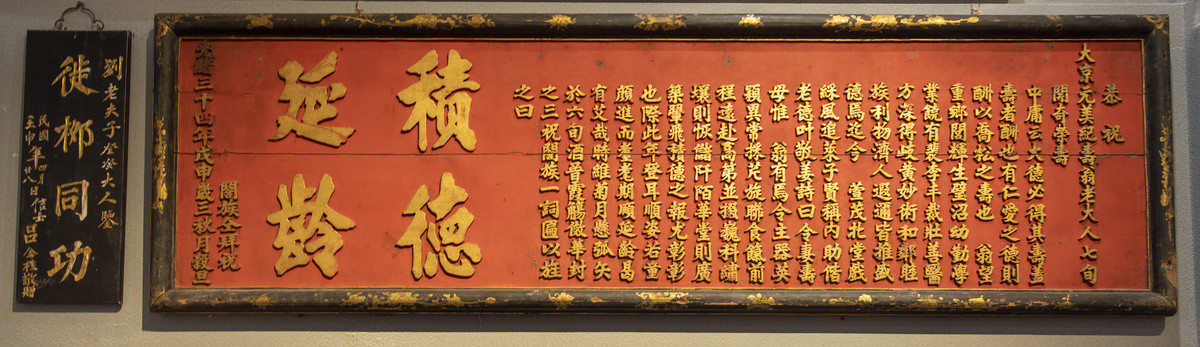 恭祝
大京元美紀壽翁老大人七旬
開奇榮壽
中庸云大德必得其壽蓋
壽者酬也有仁愛之德則
酬以喬松之壽也 翁望
重鄉閭輝生璧沼幼勤學
業饒有裴李丰裁壯善醫
方深得岐黃妙術和鄰睦
族利物濟人遐邇皆推盛
德焉迄今 萱茂北堂戲
綵風追萊子賢稱內助偕
老德叶敬姜詩曰令妻壽
母惟 翁有焉令主器英
穎異常採芹旋聯食餼前
程遠赴高弟並掇巍科繡
壤則恢儲阡陌華堂則廣
築翬飛積德之報尤彰彰
也際此年登耳順姿沽童
顏進而耋耄期順延齡曷
有艾哉時維菊月懸弧矢
於六旬酒晉霞觴傚華封
之三祝閤族一詞匾以旌
之曰
積德
延齡
閤族仝拜祝
光緒三十四年戊申歲三秋月穀旦
劉老夫子大人鑒
徙柳同功
民國壬申年四月廿八日信士呂金